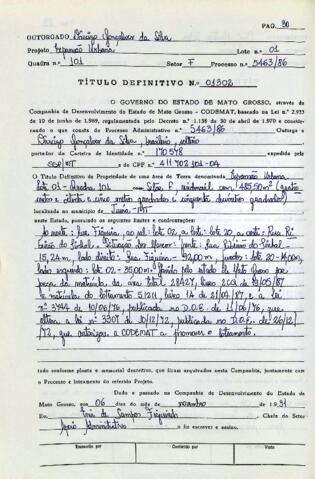 PAG. 90
OUTORGADO Thiago Gonçalves da Silva
Projeto Expansão Urbana Lote n.º 01
Quadra n.º 101 Setor F Processo n.º 5463/86
TÍTULO DEFINITIVO N.º 01302
O GOVERNO DO ESTADO DE MATO GROSSO, através da
Companhia de Desenvolvimento do Estado de Mato Grosso - CODEMAT, baseado na Lei n.º 2.933
de 10 de junho de 1.969, regulamentada pelo Decreto n.º 1.138 de 30 de abril de 1.970 e conside-
rando o que consta do Processo Administrativo n.º 5463/86 Outorga a
Thiago Gonçalves da Silva, brasileiro, solteiro
portador da Carteira de Identidade n.º 170578 expedida pelo
SSP/MT e do CPF n.º 411702101-04
O Título Definitivo de Propriedade de uma Área de Terra denominada Expansão Urbana
lote 01 - Quadra 101 Setor F, residencial com 485,50 m² (quatro
centos e oitenta e cinco metros quadrados e cinquenta decímetros quadrados)
localizada no município de Juína-MT
neste Estado, possuindo os seguintes limites e confrontações:
Ao norte: Rua Figueira, ao sul: lote 02, a leste: lote 20 a oeste: Rua Ri
beirão do Pinhal - Situação dos Marcos: frente: Rua Ribeirão do Pinhal
15,24m, lado direito: Rua Figueira - 32,00m, fundos: lote 20 - 14,00m,
lado esquerdo: lote 02 - 35,00m
matrícula, da área total 28427, livro
e matrícula do loteamento 51211, livro 14 de 21/04/87, e a lei
n.º 3744 de 10/06/76, publicada no D.O.E. de 11/06/76, que
altera a lei n.º 3307 de 10/12/72, publicada no D.O.E. de 26/12/
72, que autorizou a CODEMAT a promover o loteamento.
tudo conforme planta e memorial descritivo, que ficam arquivados nesta Companhia, juntamente com
o Processo e loteamento do referido Projeto.
Dado e passado na Companhia de Desenvolvimento do Estado de
Mato Grosso, aos 06 dias do mês de novembro de 1991
Eu, de Campos Figueiredo Chefe do Setor
Apoio Administrativo o fiz escrever e assino.
Transcrito por Conferido por Visto